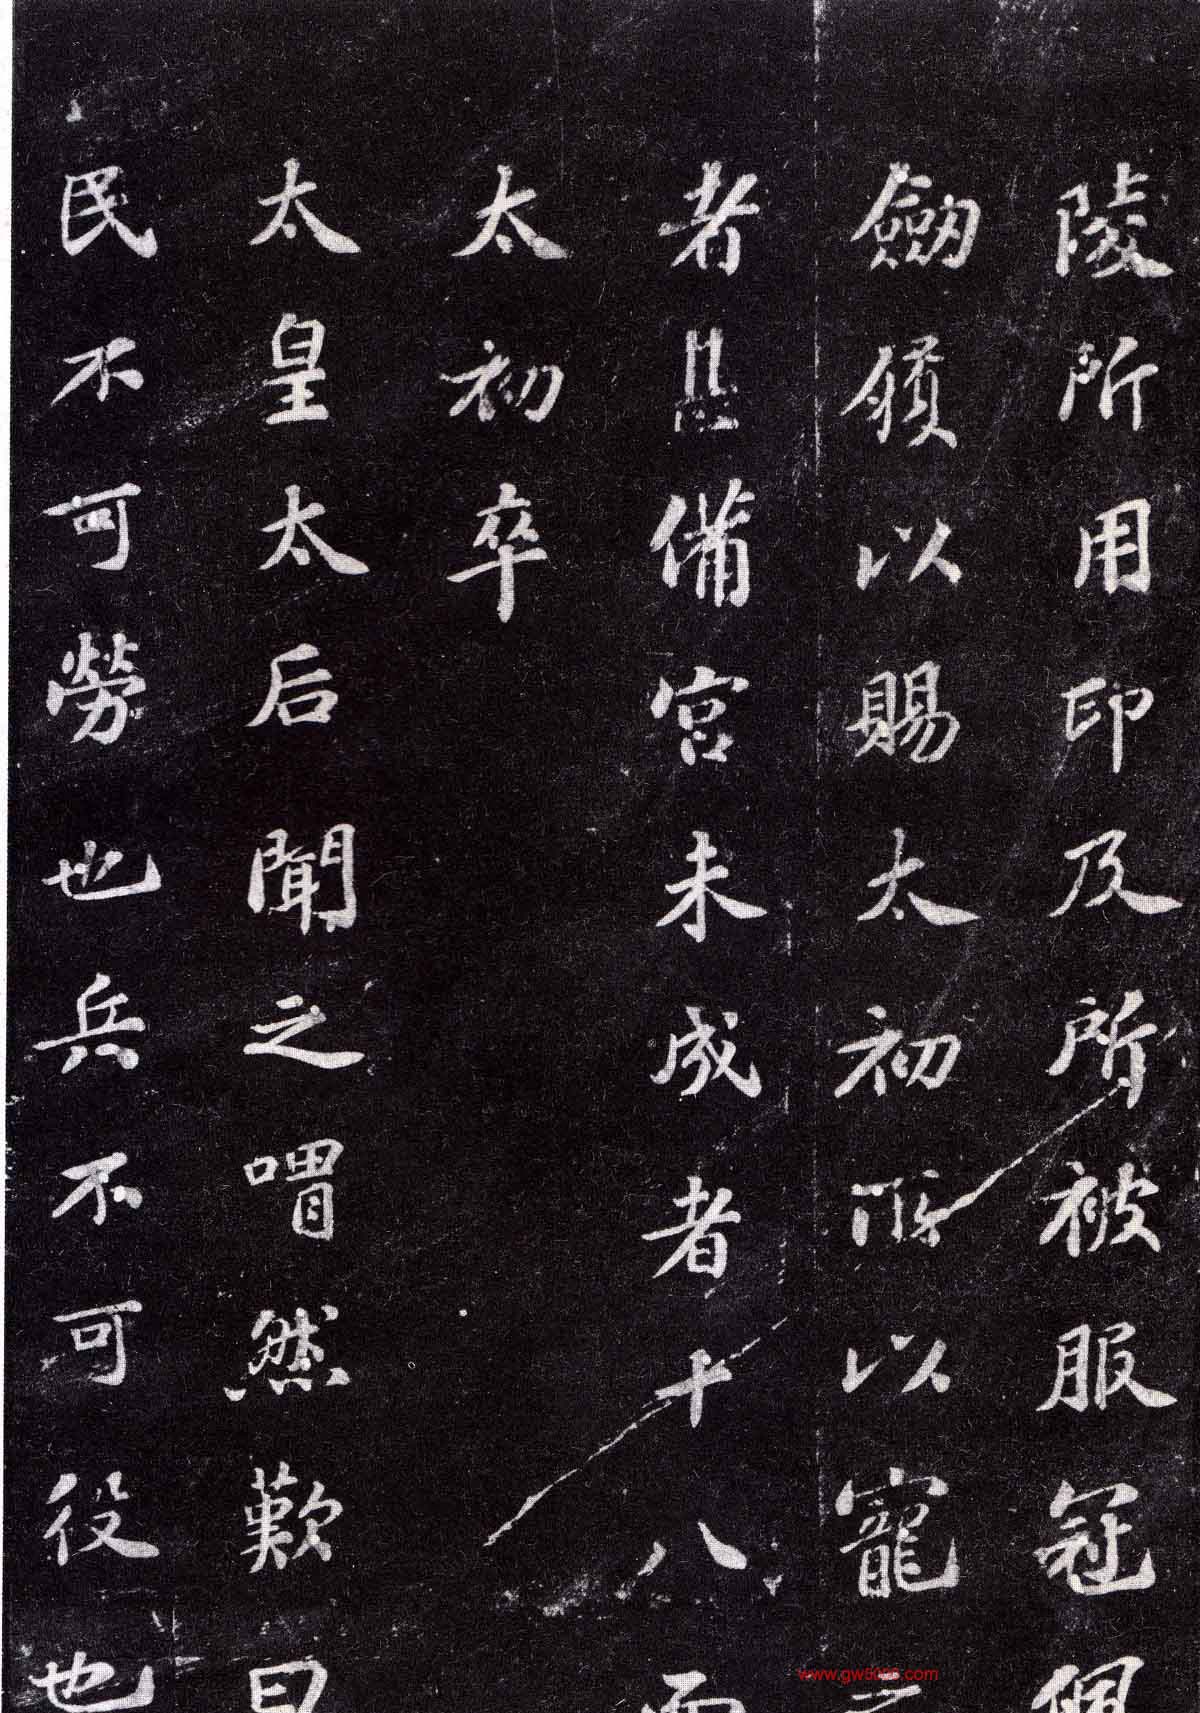 陵所用印及所被服冠佩
劒履以賜太初所以寵
者甚備宮未成者十八而
太初卒
太皇太后聞之喟然歎曰
民不可勞也兵不可役也
www.gw5066.com